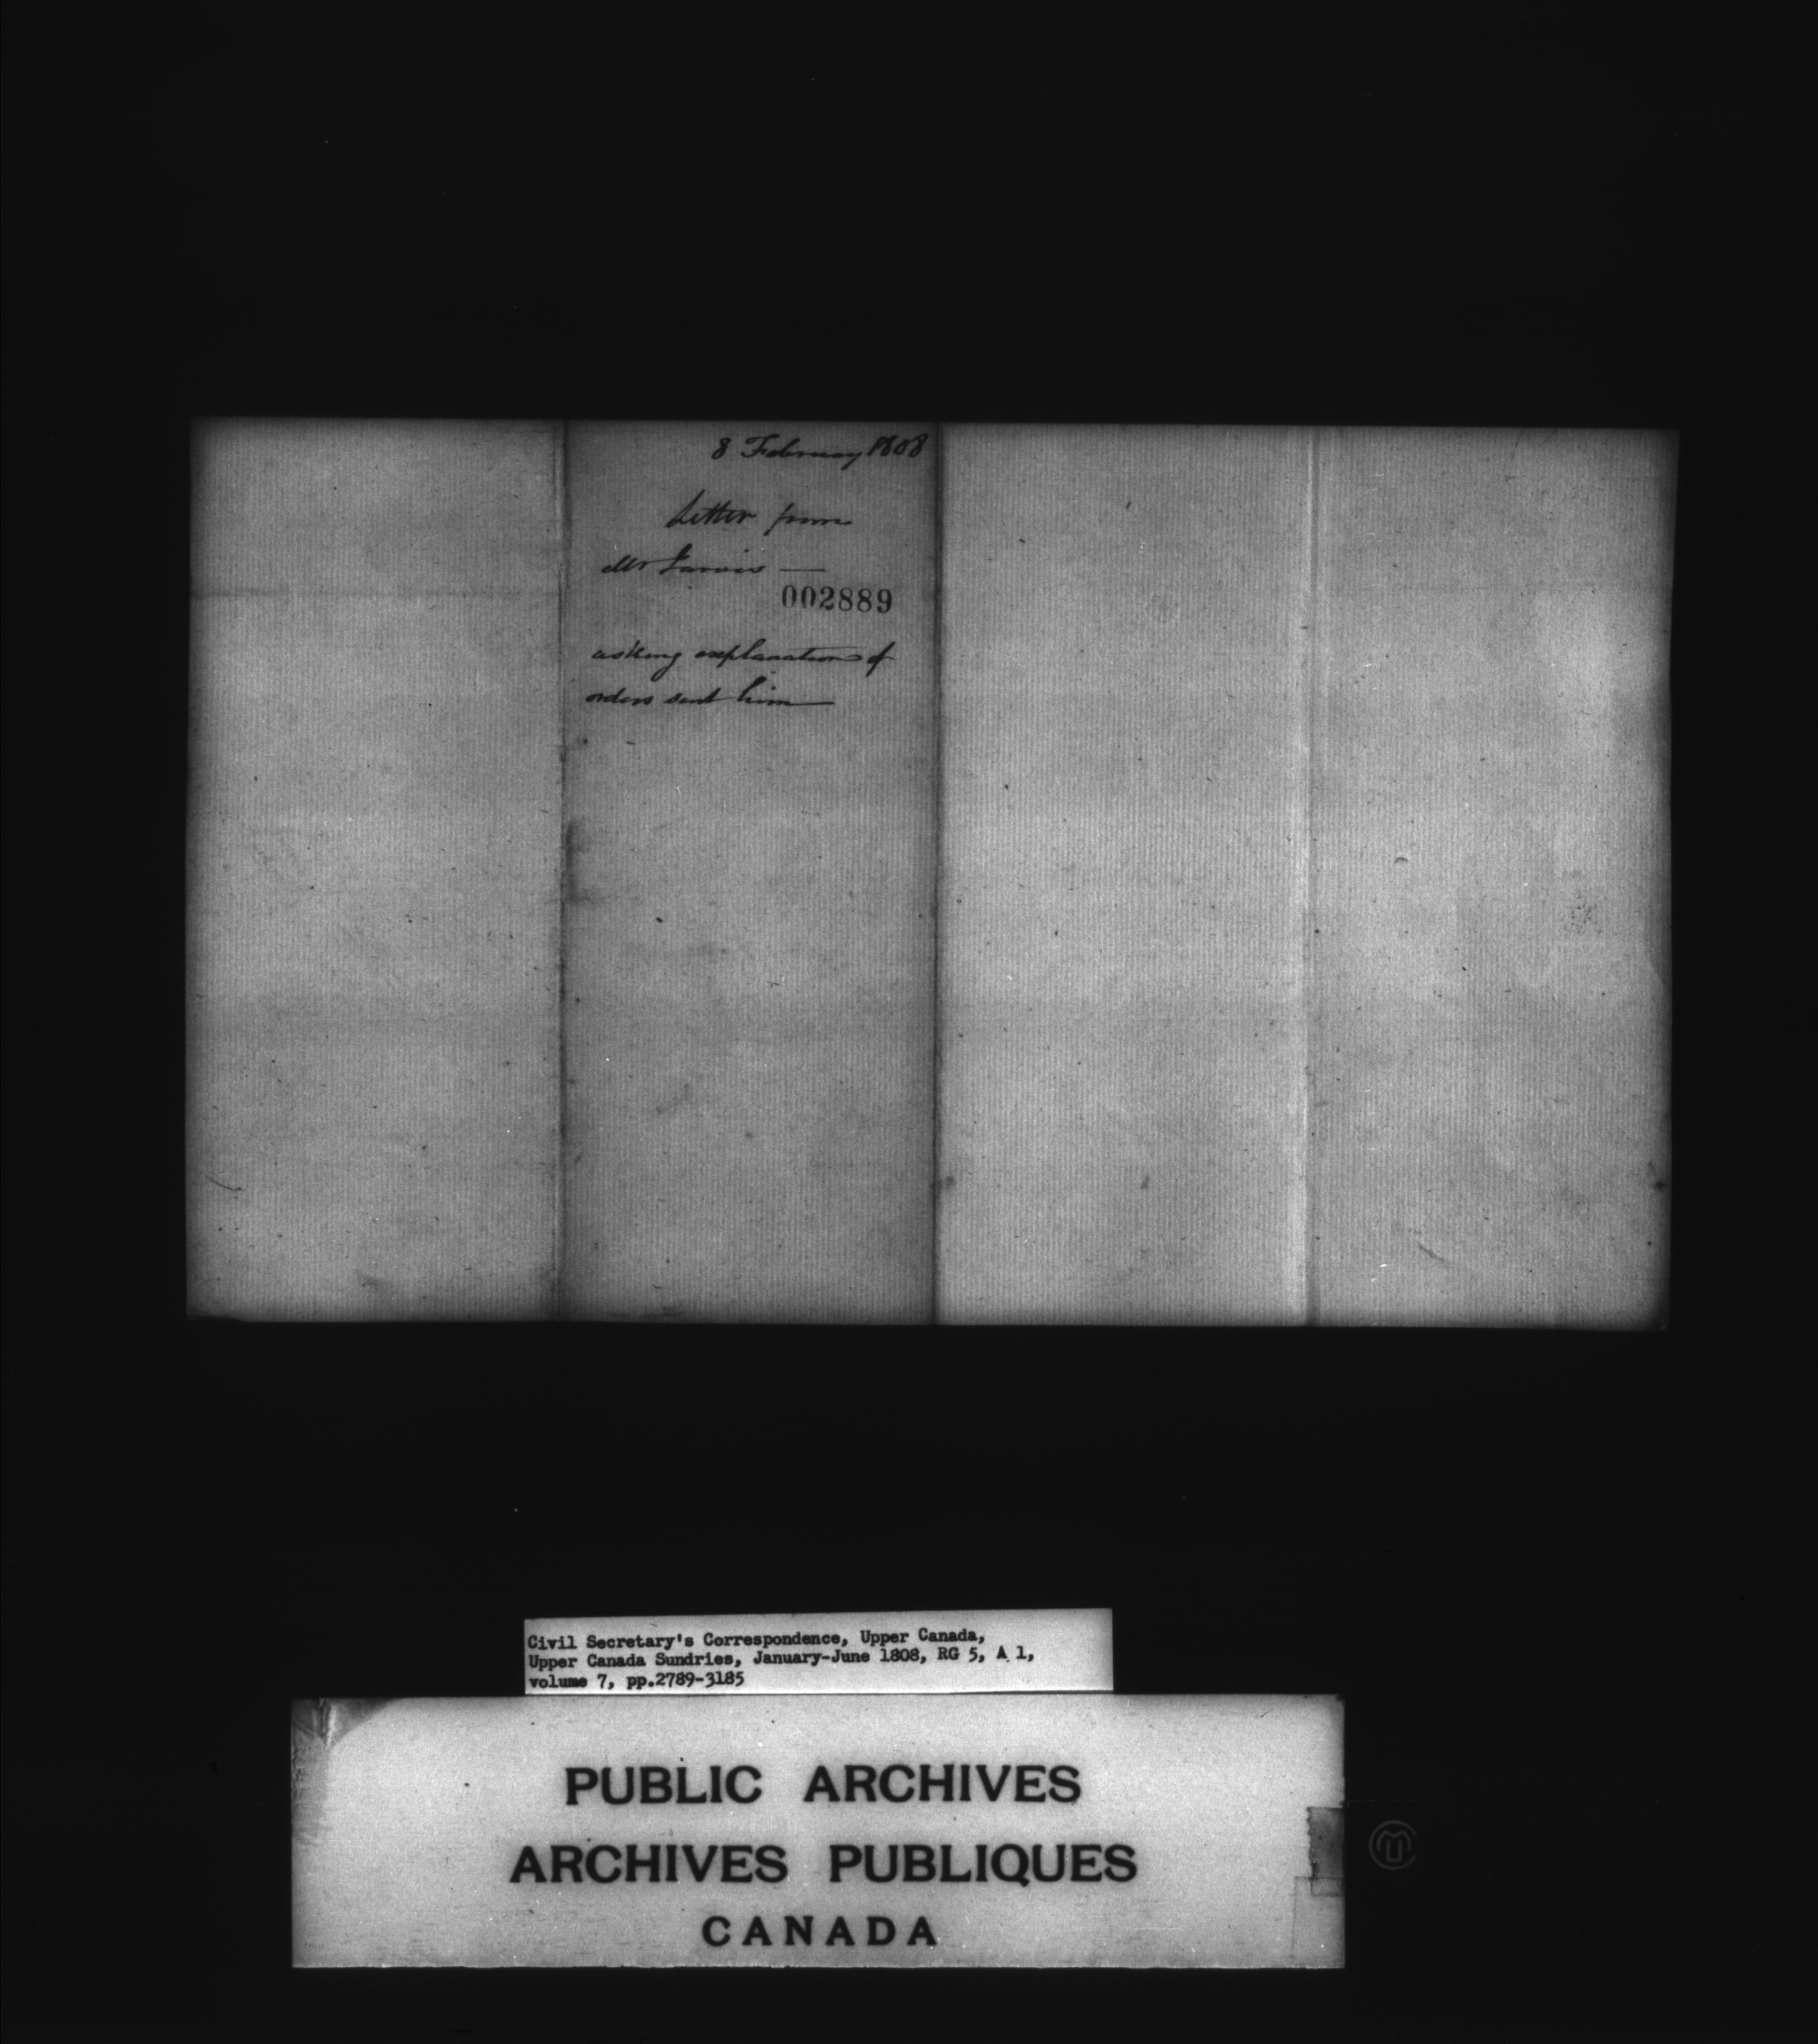 8 February 1808
Letter from
Mr Jarvis —
002889
asking explanation of
orders sent him —
Civil Secretary's Correspondence, Upper Canada,
Upper Canada Sundries, January-June 1808, RG 5, A 1,
volume 7, pp.2789-3185
PUBLIC ARCHIVES
ARCHIVES PUBLIQUES
CANADA